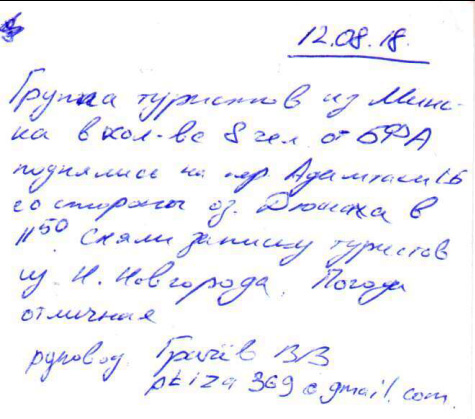 12.08.18.
Группа туристов из Минс-
ка в кол-ве 8 чел. от БФА
поднялись на пер. Адамташ 1Б
со стороны оз. Дюшаха в
11⁵⁰. Сняли записку туристов
из Н. Новгорода. Погода
отличная
руковод. Грачёв В В
ptiza369@gmail.com.